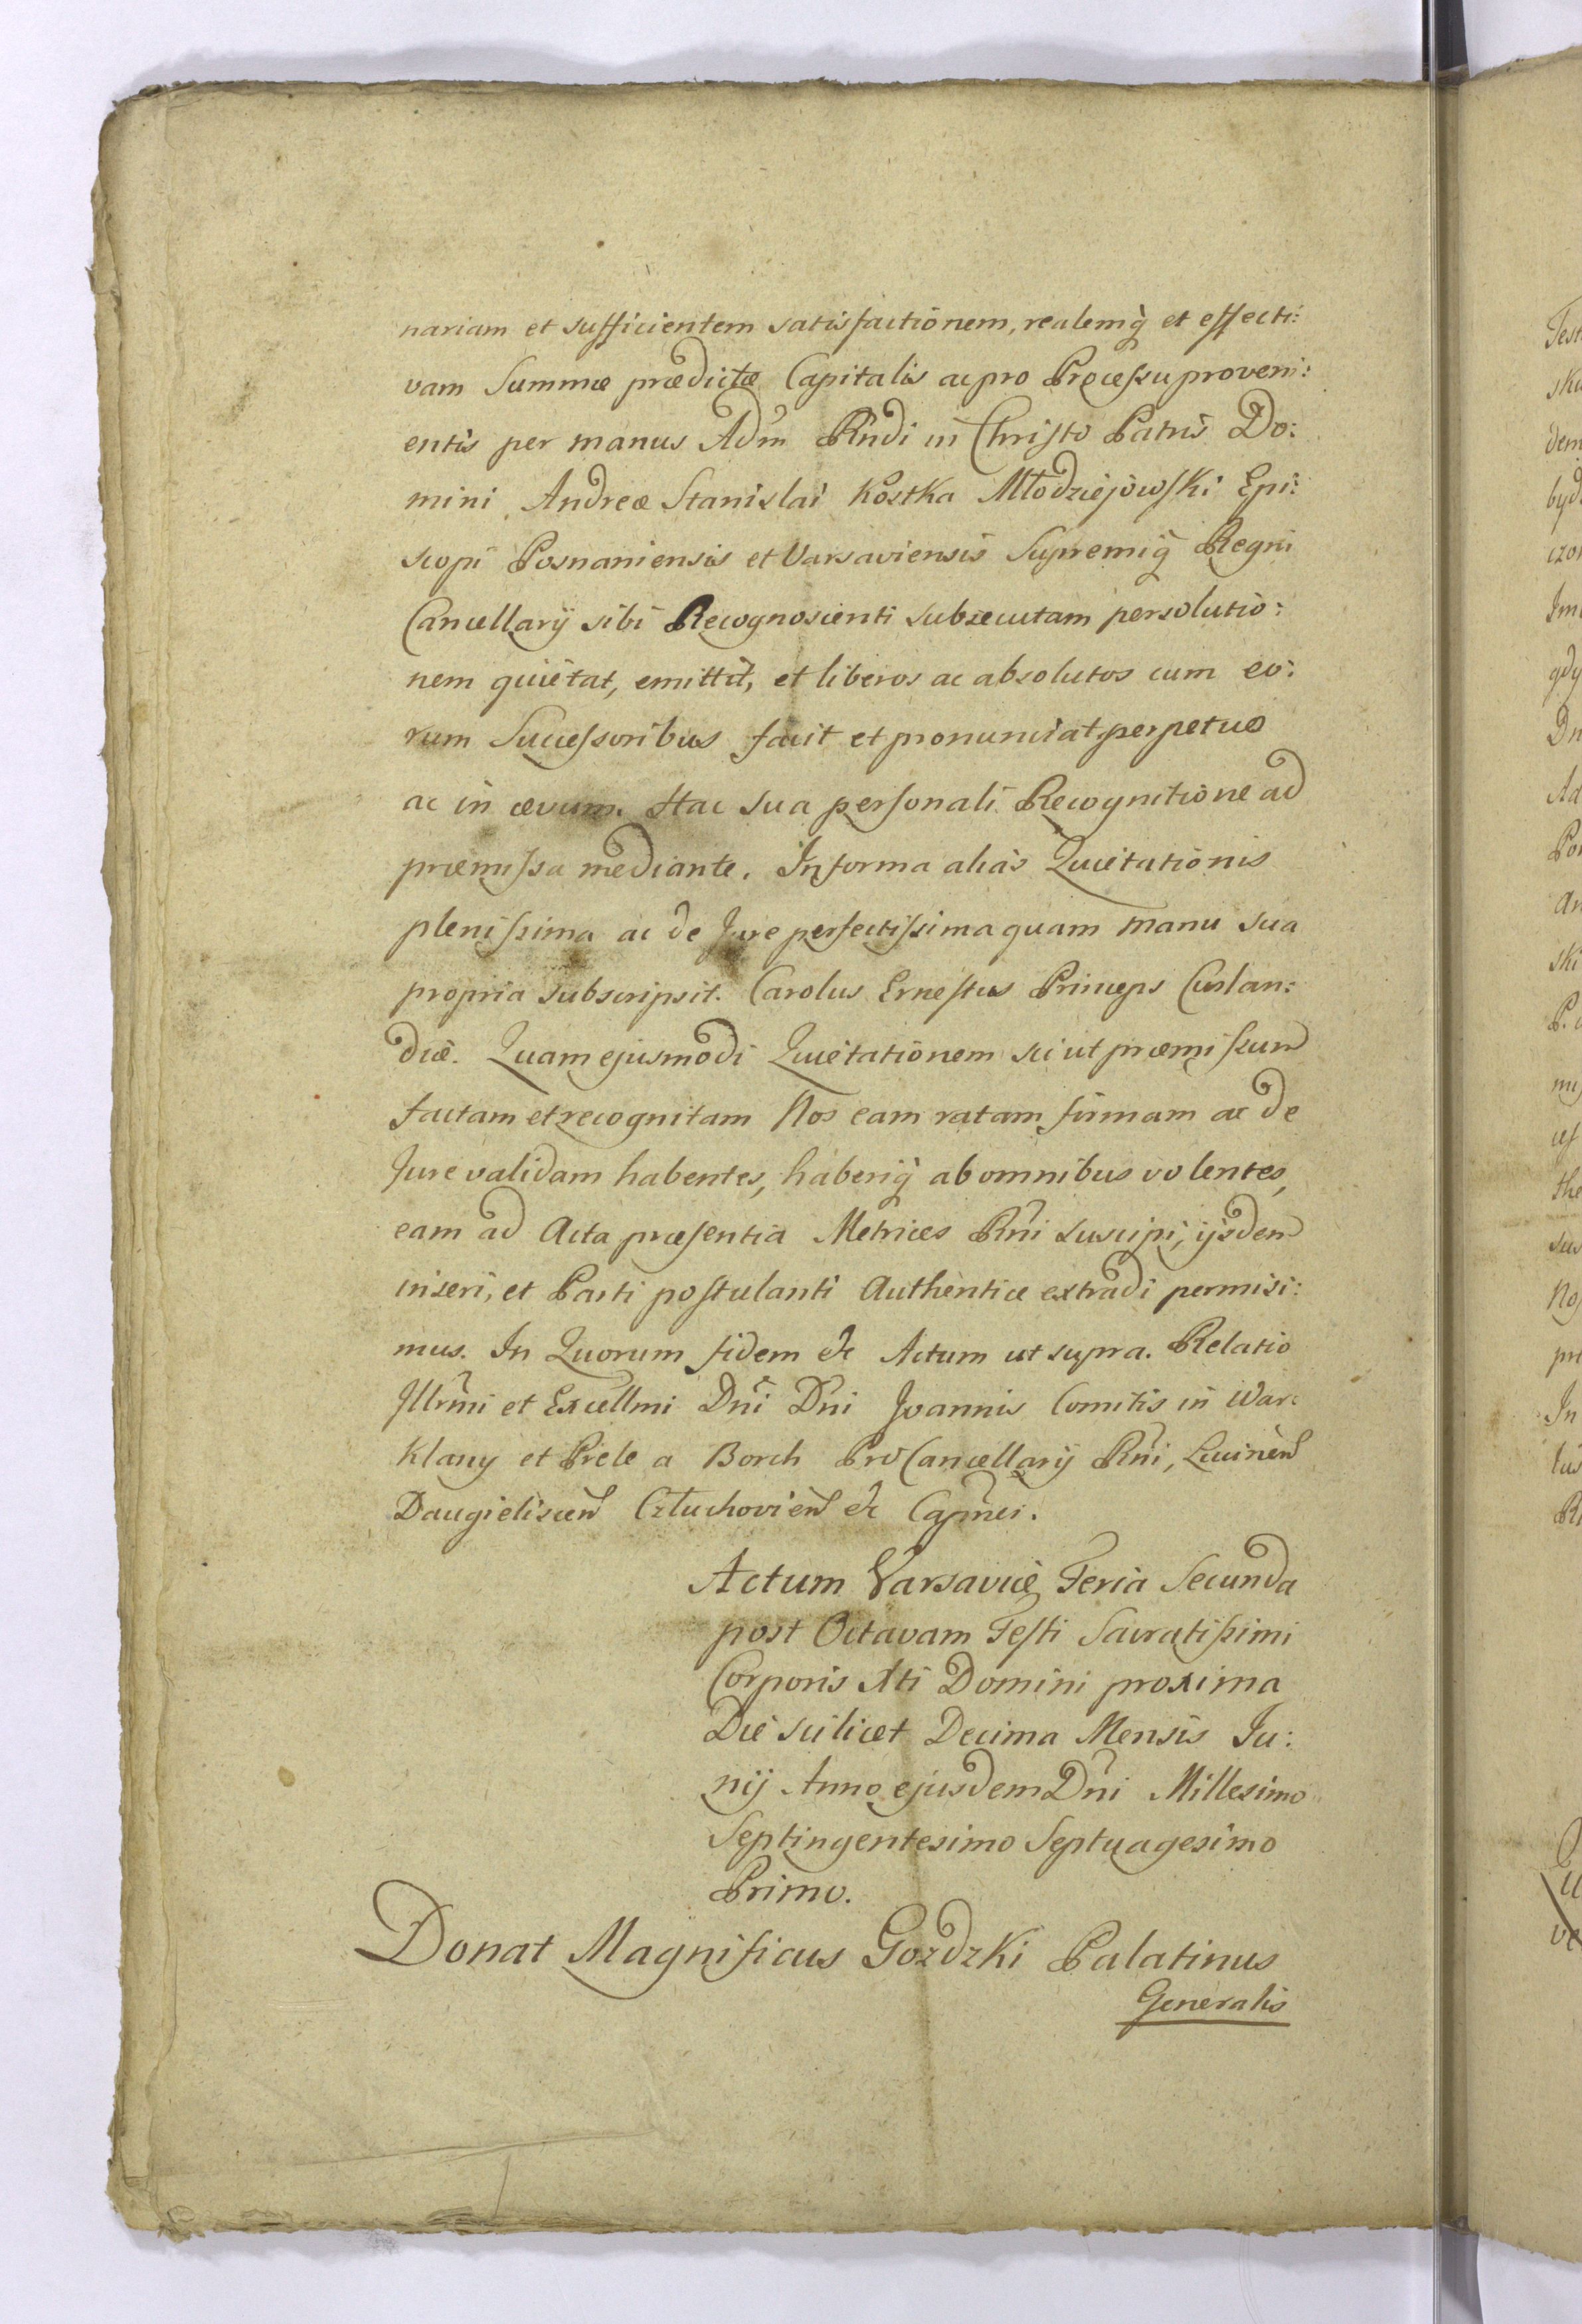 nariam et sufficientem satisfactionem, realemq̀ et effecti:
vam Summæ prædictæ Capitalis ac pro Processu proveni:
entis per manus Adm Rñdi in Christo Patris Do:
mini Andreæ Stanislai Kostka Młodziejowski Epi:
scopi Posnaniensis et Varsaviensis Supremiq̀ Regni
Cancellarij sibi Recognoscenti subsecutam persolutio:
nem quietat, emittit, et liberos ac absolutos cum eo:
rum Successoribus facit et pronunciat perpetuo
ac in ævum. Hac sua personali Recognitione ad
præmissa mediante. In forma alias Quietationis
plenissima ac de Jure perfectissima quam manu sua
propria subscripsit. Carolus Ernestus Princeps Curlan:
diæ. Quam ejusmodi Quietationem sicut præmissum
factam et recognitam Nos eam ratam firmam ac de
Jure validam habentes, haberiq̀ ab omnibus volentes,
eam ad Acta præsentia Metrices Rñi suscipi, ijsdem
inseri, et Parti postulanti Authentice extradi permisi:
mus. In Quorum fidem &c Actum ut supra. Relatio
Jllrm̃i et Excellmi Dñi Dñi Joannis Comitis in War:
klany et Prele a Borch ProCancellarij Rñi, Lucinen
Daugieliscen Człuchovien &c Capnei.
Actum Varsaviæ Feria Secunda
post Octavam Festi Sacratissimi
Corporis Xti Domini proxima
Die scilicet Decima Mensis Ju:
nij Anno ejusdem Dñi Millesimo
Septingentesimo Septuagesimo
Primo.
Donat Magnificus Gozdzki Palatinus
Generalis